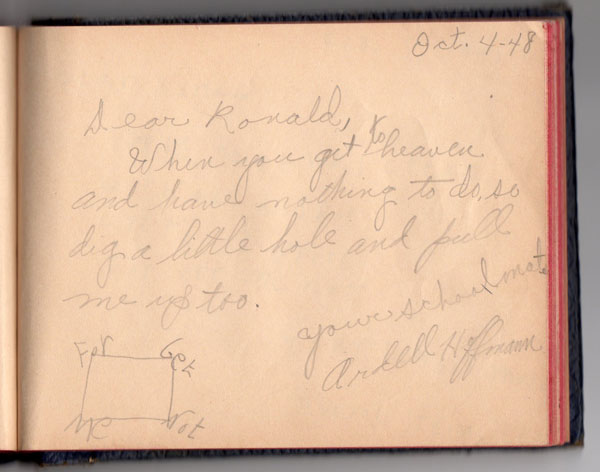 Oct. 4-48
Dear Ronald,
When you get to heaven
and have nothing to do, so
dig a little hole and pull
me up too.
your school mate
Ardell Hoffmann
For Get
Me Not